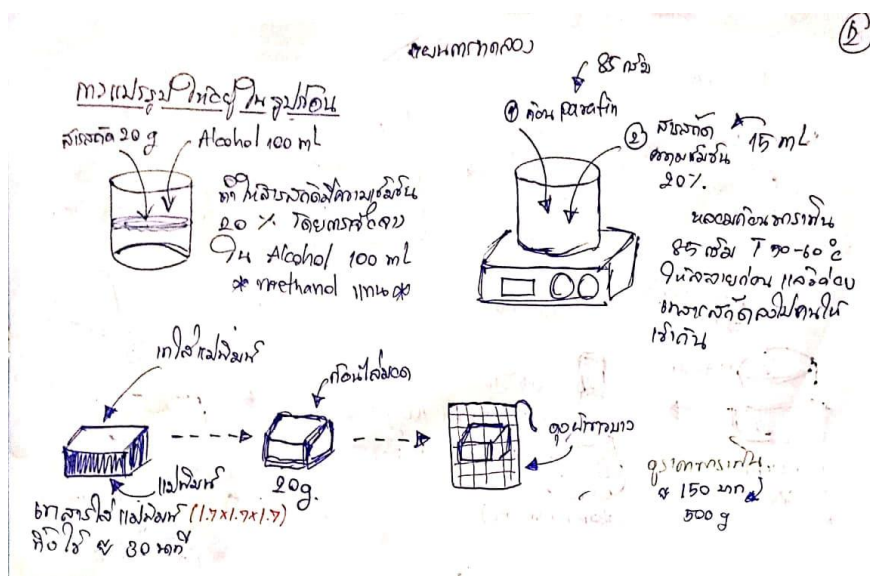 5
แผนการทดลอง
การแปรรูปให้อยู่ในรูปก้อน
สารสกัด 20 g
Alcohol 100 mL
ทำให้สารสกัดมีความเข้มข้น
20 % โดยการเจือจาง
ใน Alcohol 100 mL
* methanol แทน *
85 กรัม
① ก้อน parafin
② สารสกัด
ความเข้มข้น
20%
15 mL
หลอมก้อนพาราฟิน
85 กรัม T 50-60°c
ให้ละลายก่อน แล้วค่อย
เทสารสกัดลงไปคนให้
เข้ากัน
เทใส่แม่พิมพ์
แม่พิมพ์
เทสารใส่แม่พิมพ์ (1.7×1.7×1.7)
ทิ้งไว้ ≈ 30 นาที
ก้อนไล่มอด
20g.
ถุงผ้าขาวบาง
พาราฟิน
≈ 150 บาท
500 g